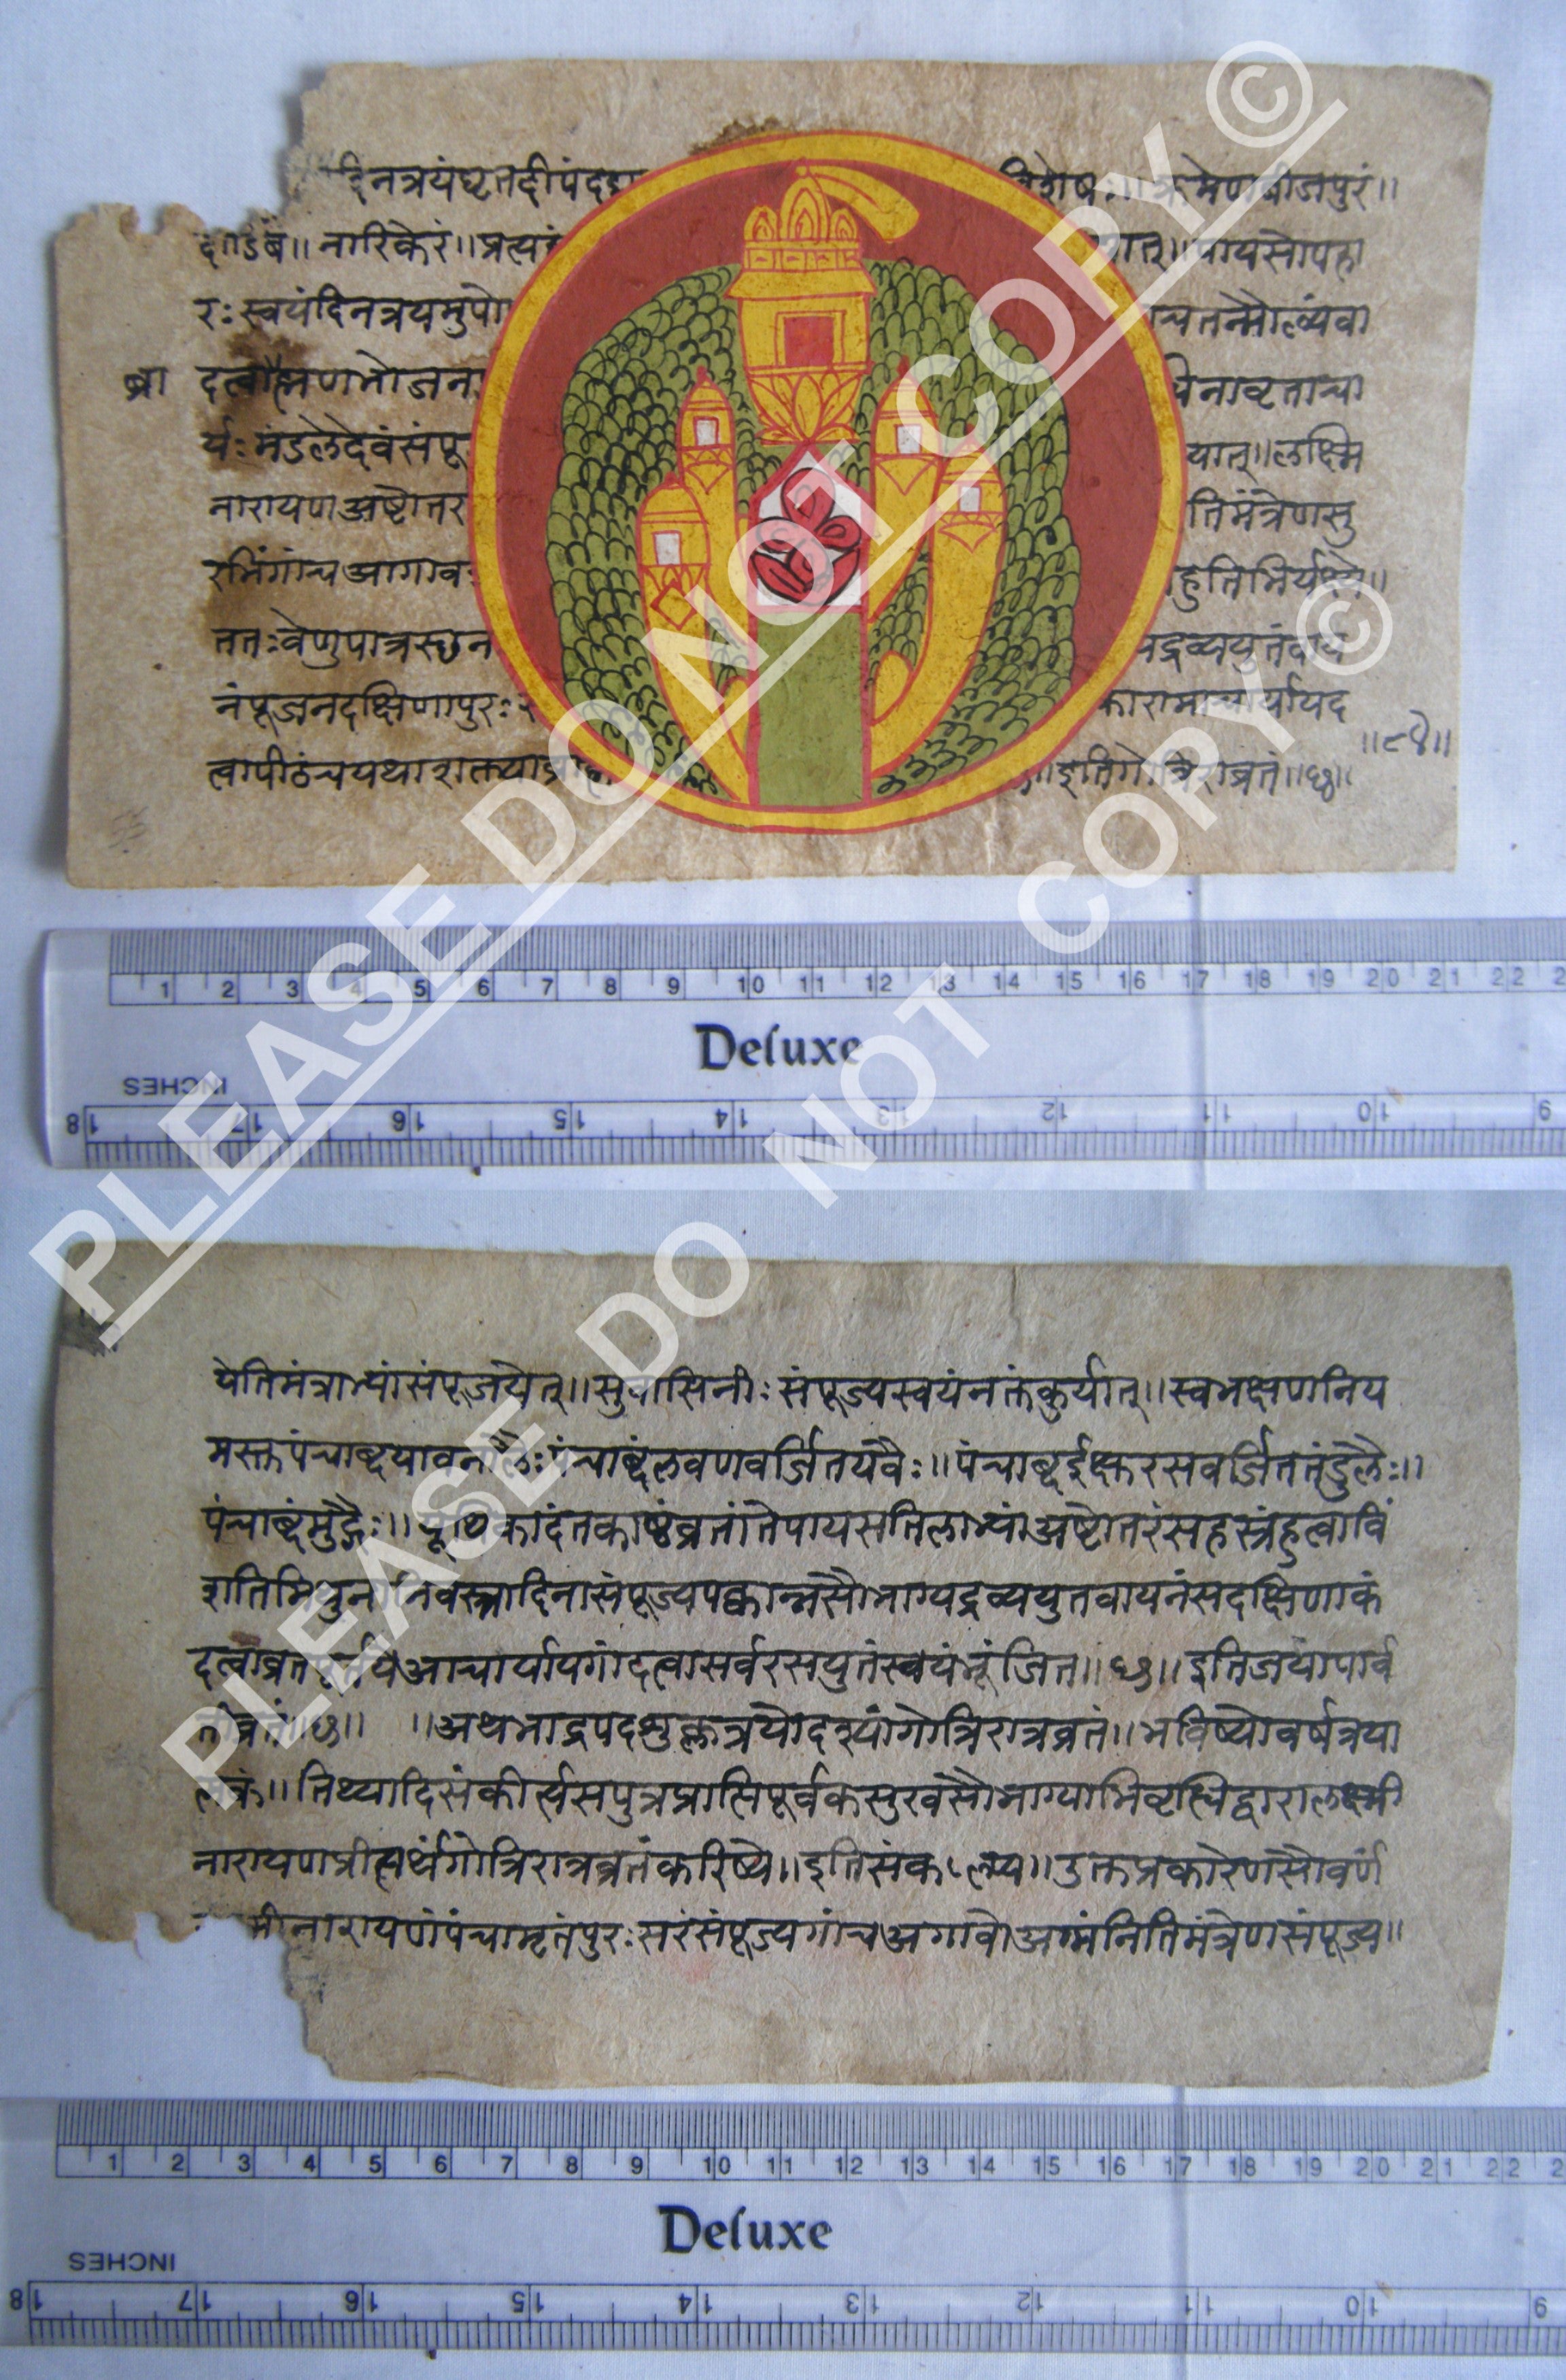 दिनत्रयंघृतदीपंदद्या विशेषः॥ क्रमेणबीजपुरं॥
॥ नारिकेरं॥ प्रत्य पायसोपहा
रः स्वयंदिनत्रयमुपो चतन्मौल्यंवा
ब्रा दत्वा भोजन
र्यः मंडलेदेवंसंपू यात्॥ लक्ष्मि
नारायणअष्टोतर तिमंत्रेणसु
रभिंगांचआगाव हुतिभिर्यक्ष्ये॥
ततःवेणुपात्रस्छन
नंपूजनदक्षिणापुरः र्यायद
त्वापीठंचयथाशक्त्या ॥ इतिगोत्रिरात्रव्रतं॥ छ॥
PLEASE DO NOT COPY ©
PLEASE DO NOT COPY ©
1 2 3 4 5 6 7 8 9 10 11 12 13 14 15 16 17 18 19 20 21 22
Deluxe
INCHES
18 17 16 15 14 13 12 11 10 9
येतिमंत्राभ्यांसंपूजयेत्॥ सुवासिनीः संपूज्यस्वयंनक्तंकुर्यात्॥ स्वभक्षणनिय
मस्तपंचाब्दयावनालैः पंचाब्दंलवणवर्जितयवैः॥ पंचाब्दईक्षरसवर्जिततंडुलैः॥
पंचाब्दंमुद्गैः॥ यूथिकादंतकाष्ठंव्रतांतेपायसतिलाभ्यांअष्टोतरंसहस्त्रंहुत्वाविं
शतिमिथुनानिवस्त्रादिनासंपूज्यपक्वान्नसौभाग्यद्रव्ययुतवायनंसदक्षिणाकं
दत्वाव्रत आचार्यायगांदत्वासर्वरसयुतंस्वयंभूंजित॥ छ॥ इतिजयापार्व
तीव्रतं॥ छ॥ ॥ अथभाद्रपदशुक्लत्रयोदश्यांगोत्रिरात्रव्रतं॥ भविष्योवर्षत्रया
त्मकं॥ तिथ्यादिसंकीर्त्यसपुत्रप्राप्तिपूर्वकसुखसौभाग्याभिवृत्धिद्वारालक्ष्मी
नारायणप्रीत्यर्थंगोत्रिरात्रव्रतंकरिष्ये॥ इतिसंकल्प्य॥ उक्तप्रकारेणसौवर्ण
मीनारायणंपंचामृतंपुरःसरंसंपूज्यगांचअगावोअग्मंनितिमंत्रेणसंपूज्य॥
1 2 3 4 5 6 7 8 9 10 11 12 13 14 15 16 17 18 19 20 21 22
Deluxe
INCHES
18 17 16 15 14 13 12 11 10 9